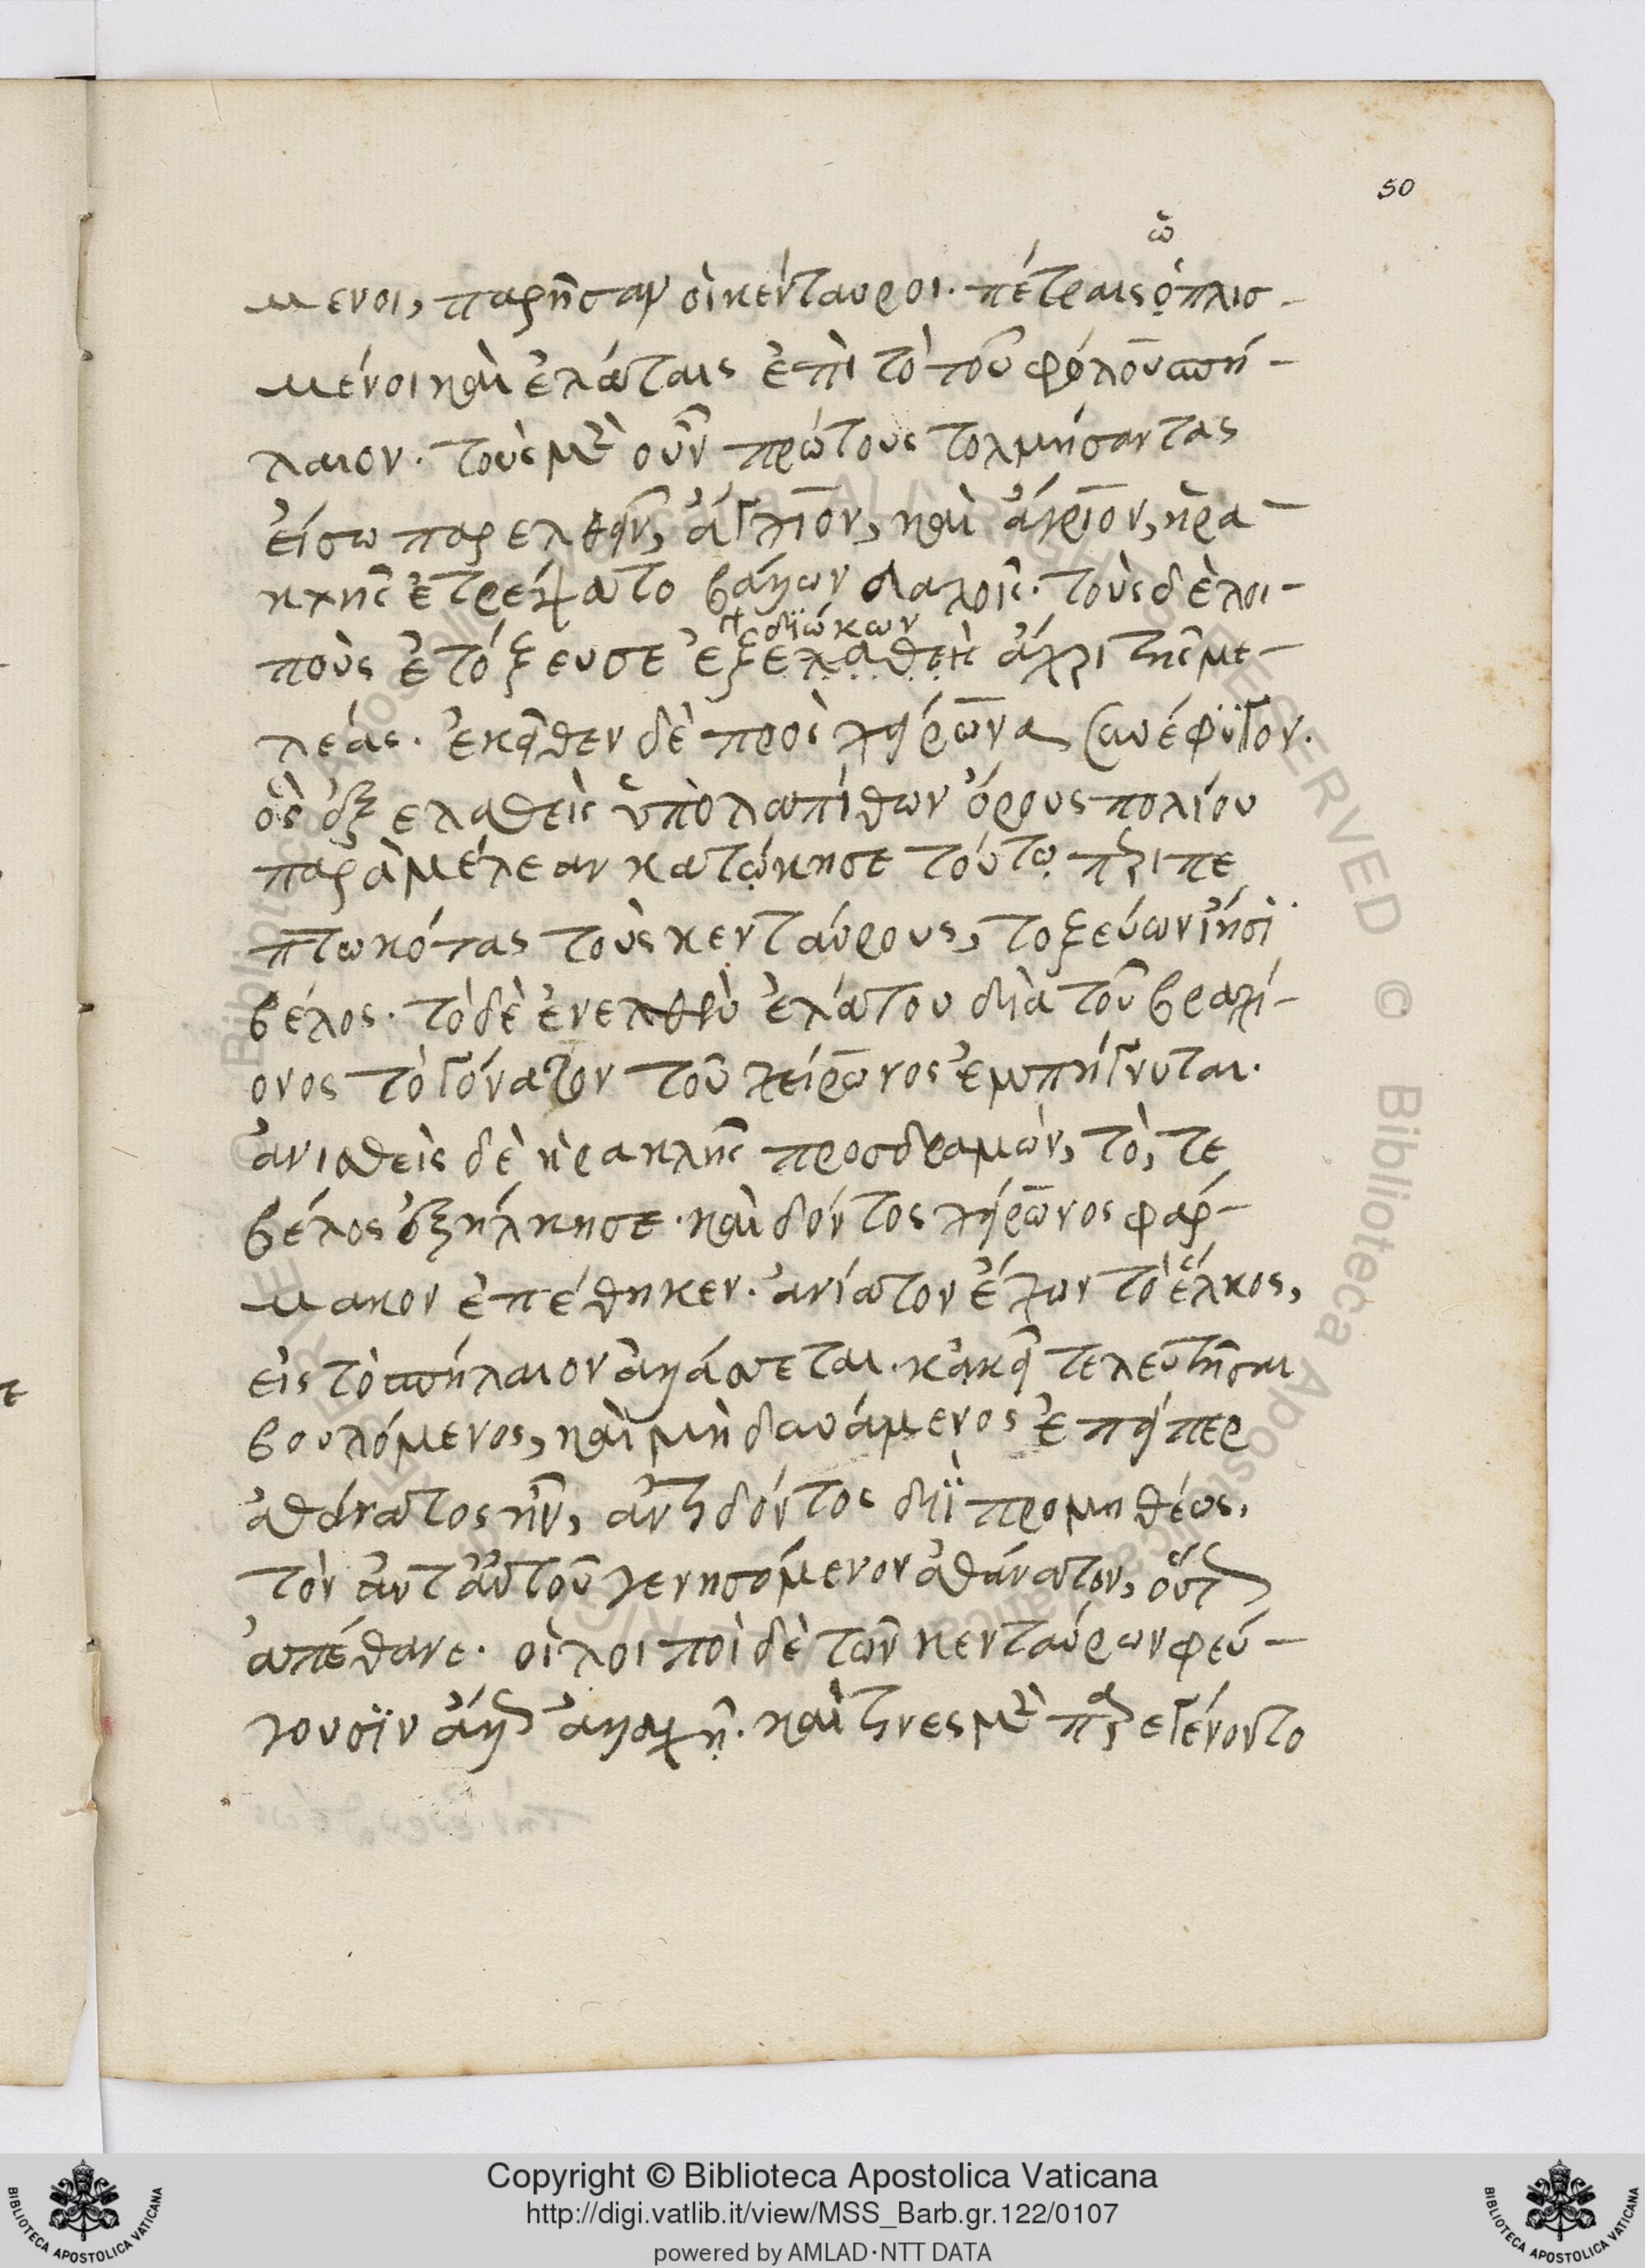 50
ὡ
μενοι, παρῆσαν οἱ κένταυροι. πέτραις ὁπλισ-
μένοι καὶ ἐλάταις ἐπὶ τὸ τοῦ φόλου σπή-
λαιον. τοὺς μὲν οὖν πρώτους τολμήσαντας
εἴσω παρελθεῖν, ἄγχιον, καὶ ἄγριον, ἡρα-
κλῆς ἐτρέψατο βάλλων δαλοῖς. τοὺς δὲ λοι-
διώκων
ποὺς ἐτόξευσε ἐξελαθεὶς ἄχρι τῆς με-
λεάς. ἐκεῖθεν δὲ πρὸς χείρωνα συνέφυγον.
ὃς ἐξελαθεὶς ὑπὸ λαπίθων ὄρους πολίου
παρὰ μέλεαν κατῴκησε τούτῳ περιπε
πτωκότας τοὺς κενταύρους, τοξεύων ἵησι
βέλος. τὸ δὲ ἐνελθὸν ἐλάτου διὰ τοῦ βραχί-
ονος τὸ γόνατον τοῦ χείρωνος ἐμπήγνυται.
ἀνιαθεὶς δὲ ἡρακλῆς προσδραμὼν, τό, τε
βέλος ἐξήλκησε. καὶ δόντος χείρωνος φάρ-
μακον ἐπέθηκεν. ἀνίατον ἔχων τὸ ἕλκος,
εἰς τὸ σπήλαιον ἀλλάσσεται. κἀκεῖ τελευτῆσαι
βουλόμενος, καὶ μὴ δαυάμενος ἐπείπερ
ἀθάνατος ἦν, ἀντιδόντος διῒ προμηθέως,
τὸν ἀντ' αὐτοῦ γενησόμενον ἀθάνατον, οὕτως
ἀπέθανε. οἱ λοιποὶ δὲ τῶν κενταύρων φεύ-
γουσιν ἄλλος ἀλλαχῇ. καὶ τινὲς μὲν παρεγένοντο
Copyright © Biblioteca Apostolica Vaticana
http://digi.vatlib.it/view/MSS_Barb.gr.122/0107
powered by AMLAD·NTT DATA
BIBLIOTECA APOSTOLICA VATICANA
BIBLIOTECA APOSTOLICA VATICANA